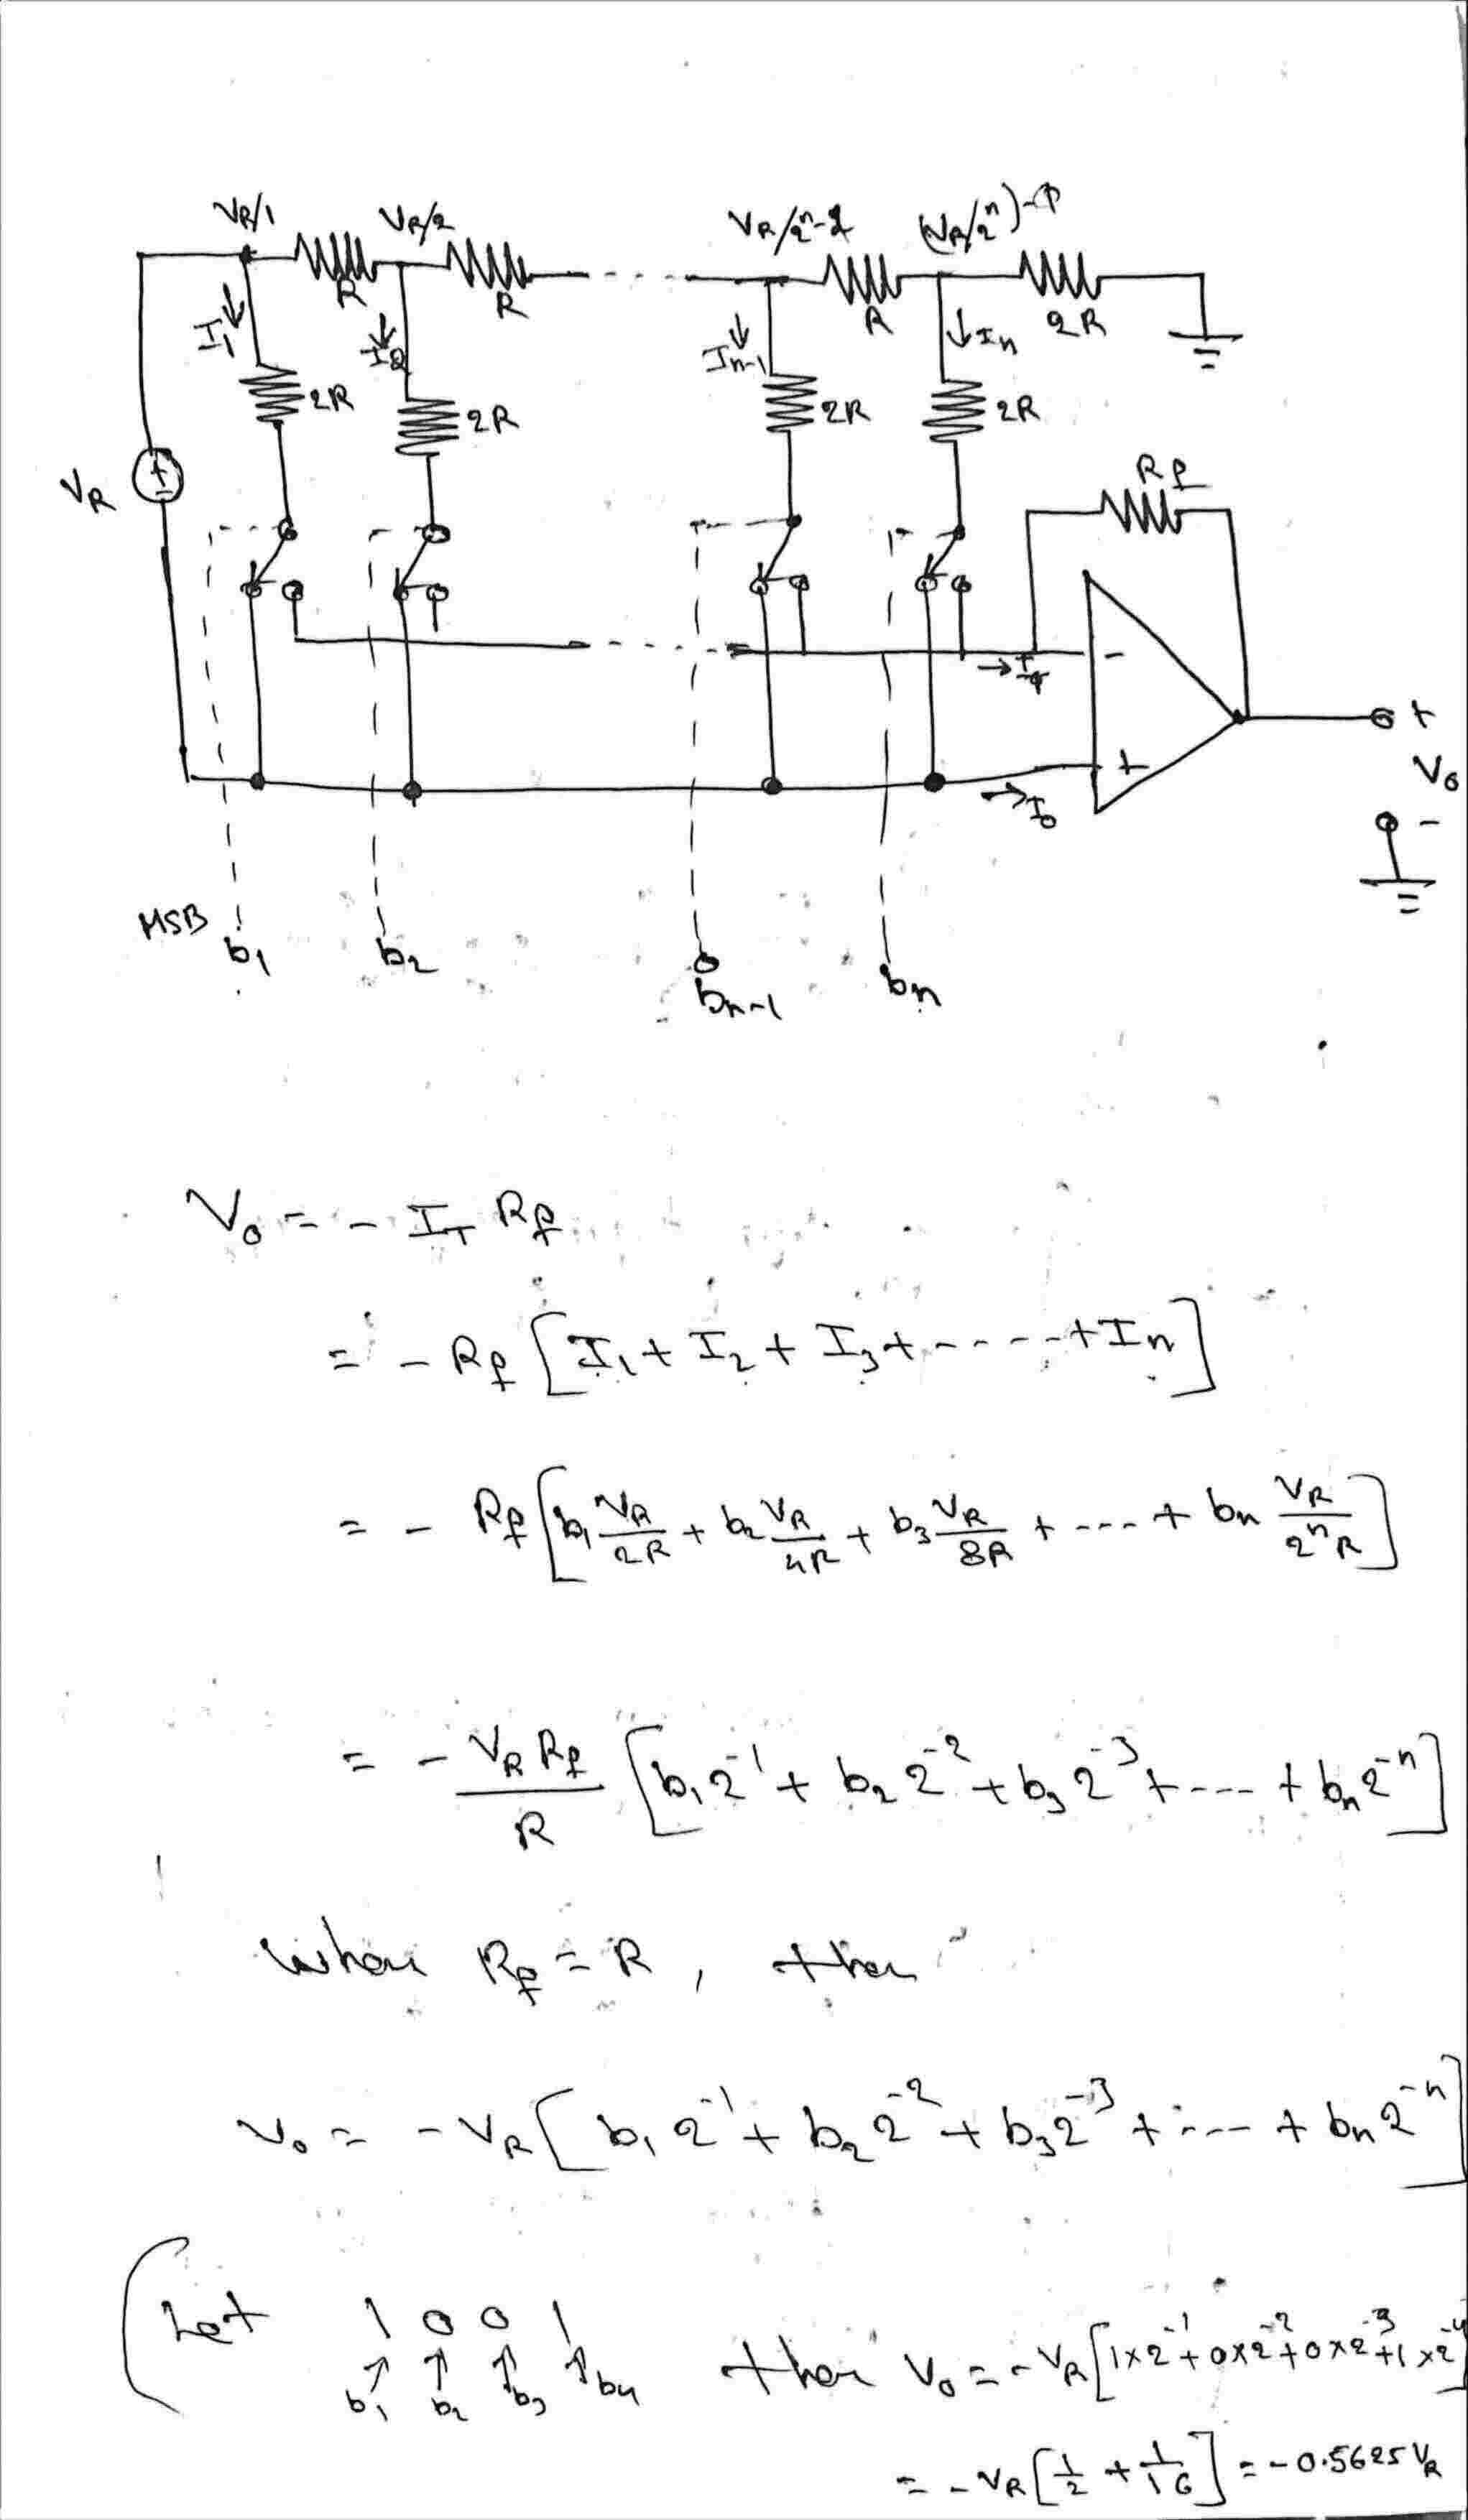 VR/1 VR/2 VR/2^n-2 (VR/2^n)-1
R R R 2R
I1 I2 In-1 In
2R 2R 2R 2R
VR + - Rf
-
→ IT
+
→ Io
+
Vo
-
MSB
b1 b2 bn-1 bn
Vo = - IT Rf
= - Rf [I1 + I2 + I3 + ----- + In]
= - Rf [b1 VR/2R + b2 VR/4R + b3 VR/8R + ---- + bn VR/2^n R]
= - VR Rf/R [b1 2^-1 + b2 2^-2 + b3 2^-3 + ---- + bn 2^-n]
When Rf = R, then
Vo = - VR [b1 2^-1 + b2 2^-2 + b3 2^-3 + ---- + bn 2^-n]
(Let 1 0 0 1
↑ ↑ ↑ ↑
b1 b2 b3 b4 then Vo = - VR [1×2^-1 + 0×2^-2 + 0×2^-3 + 1×2^-4]
= - VR [1/2 + 1/16] = -0.5625 VR